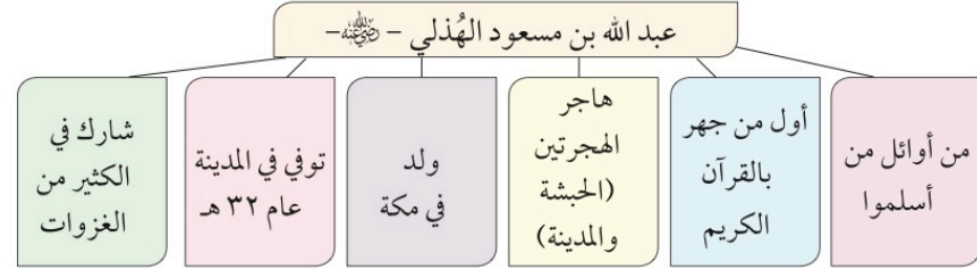 عبد الله بن مسعود الهُذلي - رضي الله عنه -
من أوائل من
أسلموا
أول من جهر
بالقرآن
الكريم
هاجر
الهجرتين
(الحبشة
والمدينة)
ولد
في مكة
توفي في المدينة
عام ٣٢ هـ
شارك في
الكثير من
الغزوات